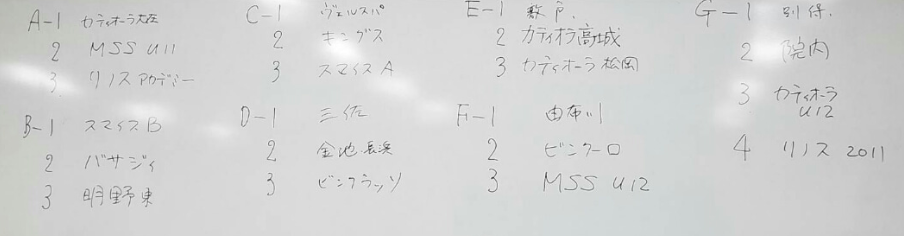 A-1 カティオーラ大在
2 MSS U11
3 リノスアカデミー
B-1 スマイスB
2 バサジィ
3 明野東
C-1 ヴェルスパ
2 キングス
3 スマイスA
D-1 三佐
2 金池長浜
3 ビンクラッソ
E-1 敷戸.
2 カティオラ高城
3 カティオーラ松岡
F-1 由布川
2 ビンクーロ
3 MSS U12
G-1 別保.
2 院内
3 カティオーラ
U12
4 リノス 2011